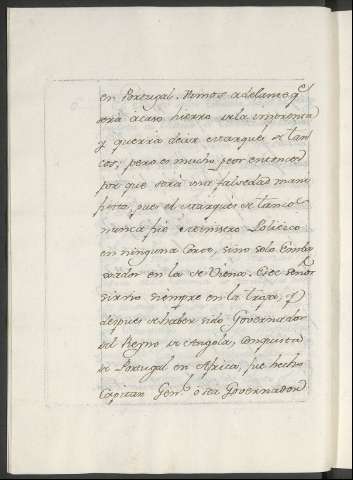 en Portugal. Vamos adelante q.e
será acaso hierro de la imprenta
y querria decir Marques de Tan-
cos; pero es mucho peor entonces
por que será una falsedad mani-
fiesta, pues el Marques de Tancos
nunca fue Ministro Politico
en ninguna Corte, sino solo Emba
xador en la de Viena. Este señor
sirvio siempre en la tropa, y
despues de haber sido Governador
del Reyno de Angola, conquista
de Portugal en Africa, fue hecho
Capitan Gen.l ó sea Governador